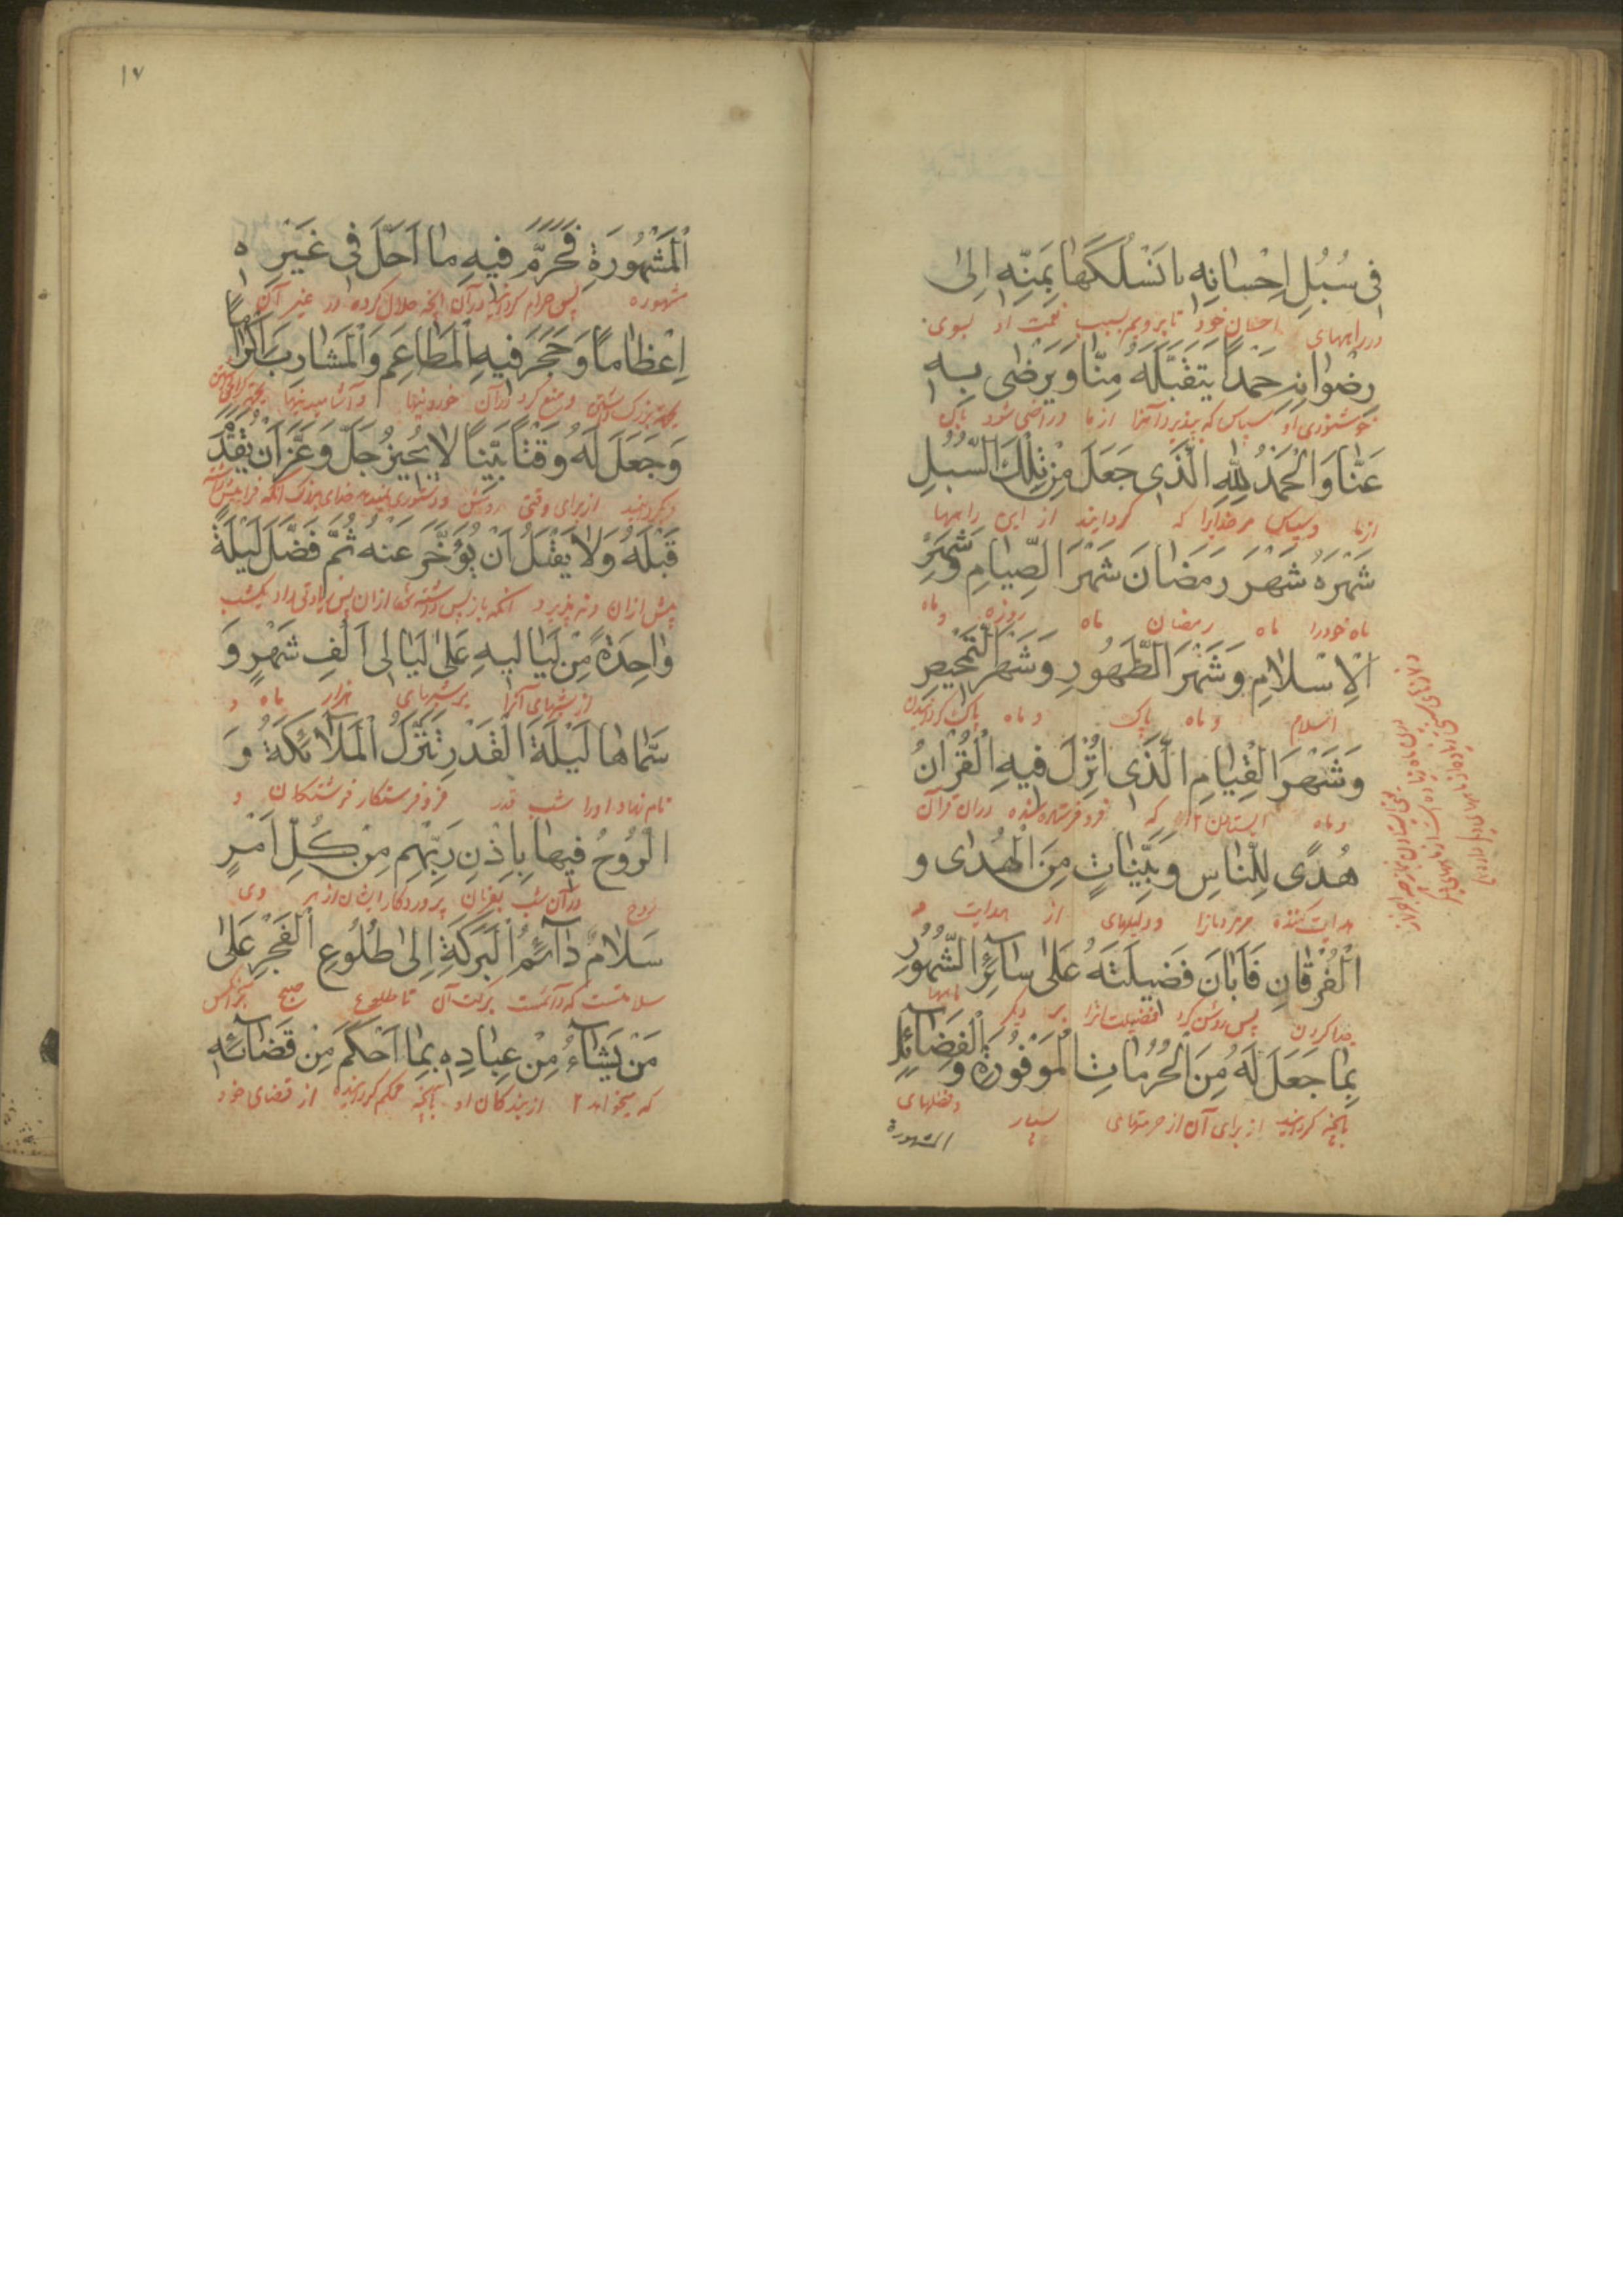 فى سُبُلِ اِحْسانِهِ ما نَسْلُكُها بِمَنِّهِ اِلىٰ
در راههای احسان خود تا برویم بسبب نعمت او بسوی
رِضْوانِهِ حَمْداً يَتَقَبَّلُهُ مِنّا وَيَرْضىٰ بِهِ
خوشنودی او سپاس که بپذیرد آنرا از ما و راضی شود بآن
عَنّا وَالْحَمْدُ لِلّٰهِ الَّذى جَعَلَ مِنْ تِلْكَ السُّبُلِ
از ما و سپاس مر خدایرا که گردانید از این راهها
شَهْرَهُ شَهْرَ رَمَضانَ شَهْرَ الصِّيامِ وَشَهْرَ
ماه خود را ماه رمضان ماه روزه و ماه
الْاِسْلامِ وَشَهْرَ الطَّهُورِ وَشَهْرَ التَّمْحيصِ
اسلام و ماه پاک و ماه پاک گردانیدن
وَشَهْرَ الْقِيامِ الَّذى اُنْزِلَ فيهِ الْقُرْانُ
و ماه ایستادن که فرو فرستاده شده در آن قرآن
هُدًى لِلنّاسِ وَبَيِّناتٍ مِنَ الْهُدىٰ وَ
هدایت کننده مر مردمانرا و دلیلهای از هدایت و
الْفُرْقانِ فَاَبانَ فَضيلَتَهُ عَلىٰ سآئِرِ الشُّهُورِ
جدا کردن پس روشن کرد فضیلت انرا بر دیگر ماهها
بِما جَعَلَ لَهُ مِنَ الْحُرُماتِ الْمَوْفُورَةِ وَالْفَضآئِلِ
بانچه گردانید از برای آن از حرمتهای بسیار و فضلهای
المشهورة
١٧
الْمَشْهُورَةِ فَحَرَّمَ فيهِ ما اَحَلَّ فى غَيْرِهِ
مشهوره پس حرام گردانید در آن آنچه حلال کرده در غیر آن
اِعْظاماً وَحَجَرَ فيهِ الْمَطاعِمَ وَالْمَشارِبَ اِكْراماً
بجهة بزرگ داشتن و منع کرد در آن خوردنیها و آشامیدنیها بجهة گرامی داشتن
وَجَعَلَ لَهُ وَقْتاً بَيِّناً لا يُجيزُ جَلَّ وَعَزَّ اَنْ يُقَدَّمَ
و گردانید از برای وقتی روشن و دستوری نمیدهد خدای بزرگ آنکه فرا پیش داشته
قَبْلَهُ وَلا يَقْبَلُ اَنْ يُؤَخَّرَ عَنْهُ ثُمَّ فَضَّلَ لَيْلَةً
پیش از آن و نه پذیرد آنکه باز پس داشته از آن پس زیادتی داد یکشب
واحِدَةً مِنْ لَياليهِ عَلىٰ لَيالى اَلْفِ شَهْرٍ وَ
از شبهای آنرا بر شبهای هزار ماه و
سَمّاها لَيْلَةَ الْقَدْرِ تَنَزَّلُ الْمَلآئِكَةُ وَ
نام نهاد او را شب قدر فرو فرستکار فرشتکان و
الرُّوحُ فيها بِاِذْنِ رَبِّهِمْ مِنْ كُلِّ اَمْرٍ
روح در آن شب بفرمان پروردکار ایشان از هر
سَلامٌ دآئِمُ الْبَرَكَةِ اِلىٰ طُلُوعِ الْفَجْرِ عَلىٰ
سلامتست که دائمست برکت آن تا طلوع صبح بر آنکس
مَنْ يَشآءُ مِنْ عِبادِهِ بِما اَحْكَمَ مِنْ قَضآئِهِ
که میخواهد از بندکان او بانچه محکم گردانیده از قضای خود